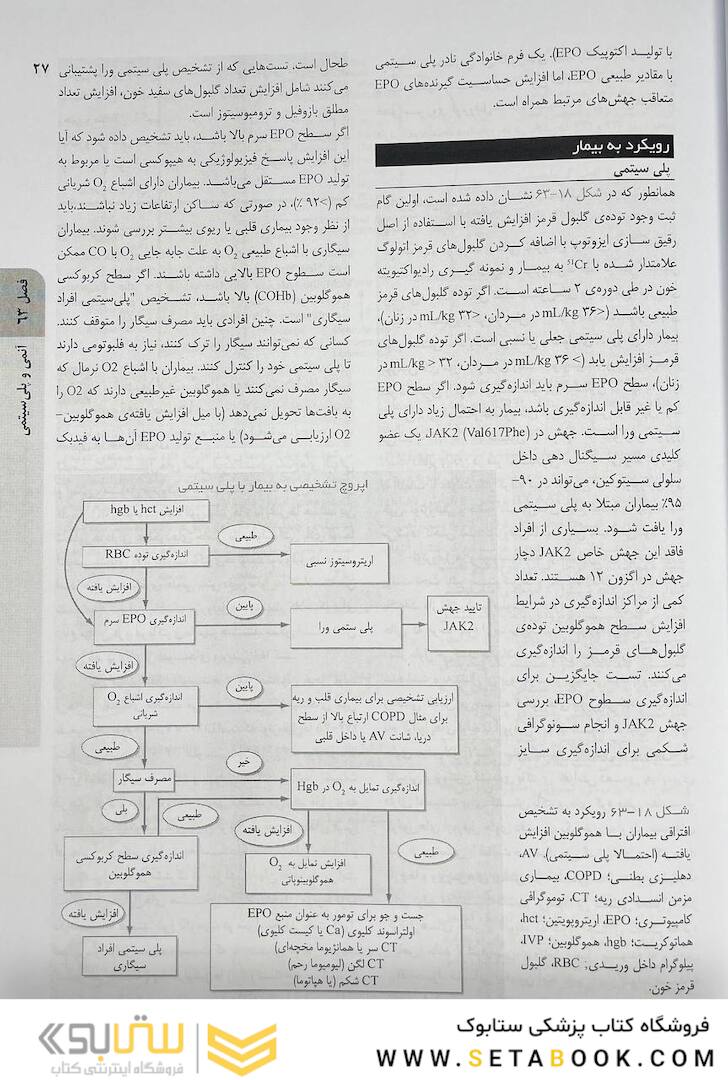 با تولید اکتوپیک EPO). یک فرم خانوادگی نادر پلی سیتمی
با مقادیر طبیعی EPO، اما افزایش حساسیت گیرنده‌های EPO
متعاقب جهش‌های مرتبط همراه است.
رویکرد به بیمار
پلی سیتمی
همانطور که در شکل ۱۸-۶۳ نشان داده شده است، اولین گام
ثبت وجود توده‌ی گلبول قرمز افزایش یافته با استفاده از اصل
رقیق سازی ایزوتوپ با اضافه کردن گلبول‌های قرمز اتولوگ
علامتدار شده با ⁵¹Cr به بیمار و نمونه گیری رادیواکتیویته
خون در طی دوره‌ی ۲ ساعته است. اگر توده گلبول‌های قرمز
طبیعی باشد (<۳۶ mL/kg در مردان، <۳۲ mL/kg در زنان)،
بیمار دارای پلی سیتمی جعلی یا نسبی است. اگر توده گلبول‌های
قرمز افزایش یابد (> ۳۶ mL/kg در مردم، ۳۲ < mL/kg در
زنان)، سطح EPO سرم باید اندازه‌گیری شود. اگر سطح EPO
کم یا غیر قابل اندازه‌گیری باشد، بیمار به احتمال زیاد دارای پلی
سیتمی ورا است. جهش در JAK2 (Val617Phe)، یک عضو
کلیدی مسیر سیگنال دهی داخل
سلولی سیتوکین، می‌تواند در ۹۰-
۹۵٪ بیماران مبتلا به پلی سیتمی
ورا یافت شود. بسیاری از افراد
فاقد این جهش خاص JAK2 دچار
جهش در اگزون ۱۲ هستند. تعداد
کمی از مراکز اندازه‌گیری در شرایط
افزایش سطح هموگلوبین توده‌ی
گلبول‌های قرمز را اندازه‌گیری
می‌کنند. تست جایگزین برای
اندازه‌گیری سطوح EPO، بررسی
جهش JAK2 و انجام سونوگرافی
شکمی برای اندازه‌گیری سایز
شکل ۱۸-۶۳ رویکرد به تشخیص
افتراقی بیماران با هموگلوبین افزایش
یافته (احتمالا پلی سیتمی). AV،
دهلیزی بطنی؛ COPD، بیماری
مزمن انسدادی ریه؛ CT، توموگرافی
کامپیوتری؛ EPO، اریتروپویتین؛ hct،
هماتوکریت؛ hgb، هموگلوبین؛ IVP،
پیلوگرام داخل وریدی؛ RBC، گلبول
قرمز خون.
۲۷
طحال است. تست‌هایی که از تشخیص پلی سیتمی ورا پشتیبانی
می‌کنند شامل افزایش تعداد گلبول‌های سفید خون، افزایش تعداد
مطلق بازوفیل و ترومبوسیتوز است.
اگر سطح EPO سرم بالا باشد، باید تشخیص داده شود که آیا
این افزایش پاسخ فیزیولوژیکی به هیپوکسی است یا مربوط به
تولید EPO مستقل می‌باشد. بیماران دارای اشباع O₂ شریانی
کم (>۹۲ ٪)، در صورتی که ساکن ارتفاعات زیاد نباشند، باید
از نظر وجود بیماری قلبی یا ریوی بیشتر بررسی شوند. بیماران
سیگاری با اشباع طبیعی O₂ به علت جابه جایی O₂ با CO ممکن
است سطوح EPO بالایی داشته باشند. اگر سطح کربوکسی
هموگلوبین (COHb) بالا باشد، تشخیص "پلی‌سیتمی افراد
سیگاری" است. چنین افرادی باید مصرف سیگار را متوقف کنند.
کسانی که نمی‌توانند سیگار را ترک کنند، نیاز به فلبوتومی دارند
تا پلی سیتمی خود را کنترل کنند. بیماران با اشباع O2 نرمال که
سیگار مصرف نمی‌کنند یا هموگلوبین غیرطبیعی دارند که O2 را
به بافت‌ها تحویل نمی‌دهد (با میل افزایش یافته‌ی هموگلوبین-
O2 ارزیابی می‌شود) یا منبع تولید EPO آن‌ها به فیدبک
فصل ۶۳
آنمی و پلی سیتمی
اپروچ تشخیصی به بیمار با پلی سیتمی
افزایش hct یا hgb
اندازه‌گیری توده RBC
طبیعی
اریتروسیتوز نسبی
افزایش یافته
اندازه‌گیری EPO سرم
پایین
پلی ستمی ورا
تایید جهش
JAK2
افزایش یافته
اندازه‌گیری اشباع O₂
شریانی
پایین
ارزیابی تشخیصی برای بیماری قلب و ریه
برای مثال COPD ارتباع بالا از سطح
دریا، شانت AV یا داخل قلبی
طبیعی
مصرف سیگار
خیر
اندازه‌گیری تمایل به O₂ در Hgb
بلی
طبیعی
افزایش یافته
طبیعی
اندازه‌گیری سطح کربوکسی
هموگلوبین
افزایش تمایل به O₂
هموگلوبینوپاتی
افزایش یافته
پلی سیتمی افراد
سیگاری
جست و جو برای تومور به عنوان منبع EPO
اولتراسوند کلیوی (Ca یا کیست کلیوی)
CT سر یا همانژیوما مخچه‌ای)
CT لگن (لیومیوما رحم)
CT شکم (یا هپاتوما)
فروشگاه کتاب پزشکی ستابوک
WWW.SETABOOK.COM
ستابوک
فروشگاه اینترنتی کتاب